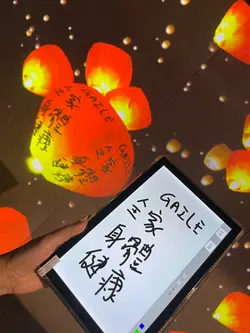 GAILE
全家
身體
健康
GAILE
全家
身體
健康